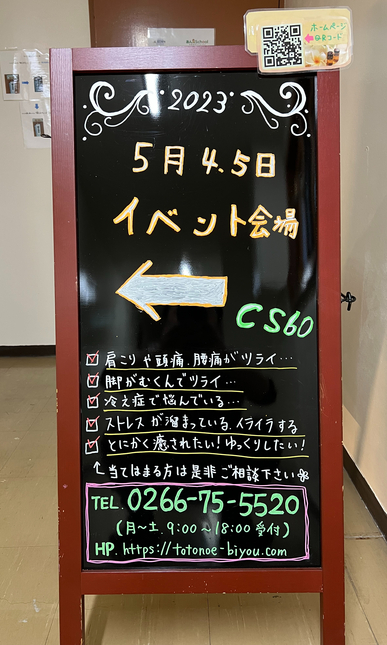 ホームページ
QRコード
2023
5月4.5日
イベント会場
CS60
肩こりや頭痛、腰痛がツライ…
脚がむくんでツライ…
冷え症で悩んでいる…
ストレスが溜まっている、イライラする
とにかく癒されたい!ゆっくりしたい!
当てはまる方は是非ご相談下さい
TEL. 0266-75-5520
(月~土 9:00~18:00 受付)
HP. https://totonoe-biyou.com